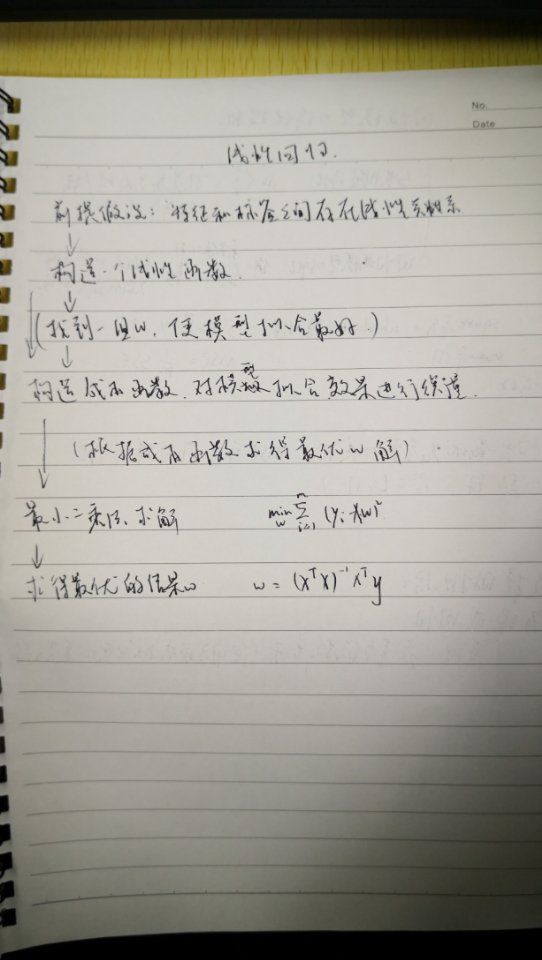 No.
Date
线性回归.
前提假设：特征和标签之间存在线性关系
↓
构造一个线性函数.
↓
(找到一组w，使模型拟合最好.)
↓
构造成本函数，对模型拟合效果进行衡量.
↓
(根据成本函数求得最优w解)
最小二乘法，求解 min_w Σ_{i=1}^{m} (y_i - Xw)²
↓
求得最优的结果w w = (X^T X)^{-1} X^T y